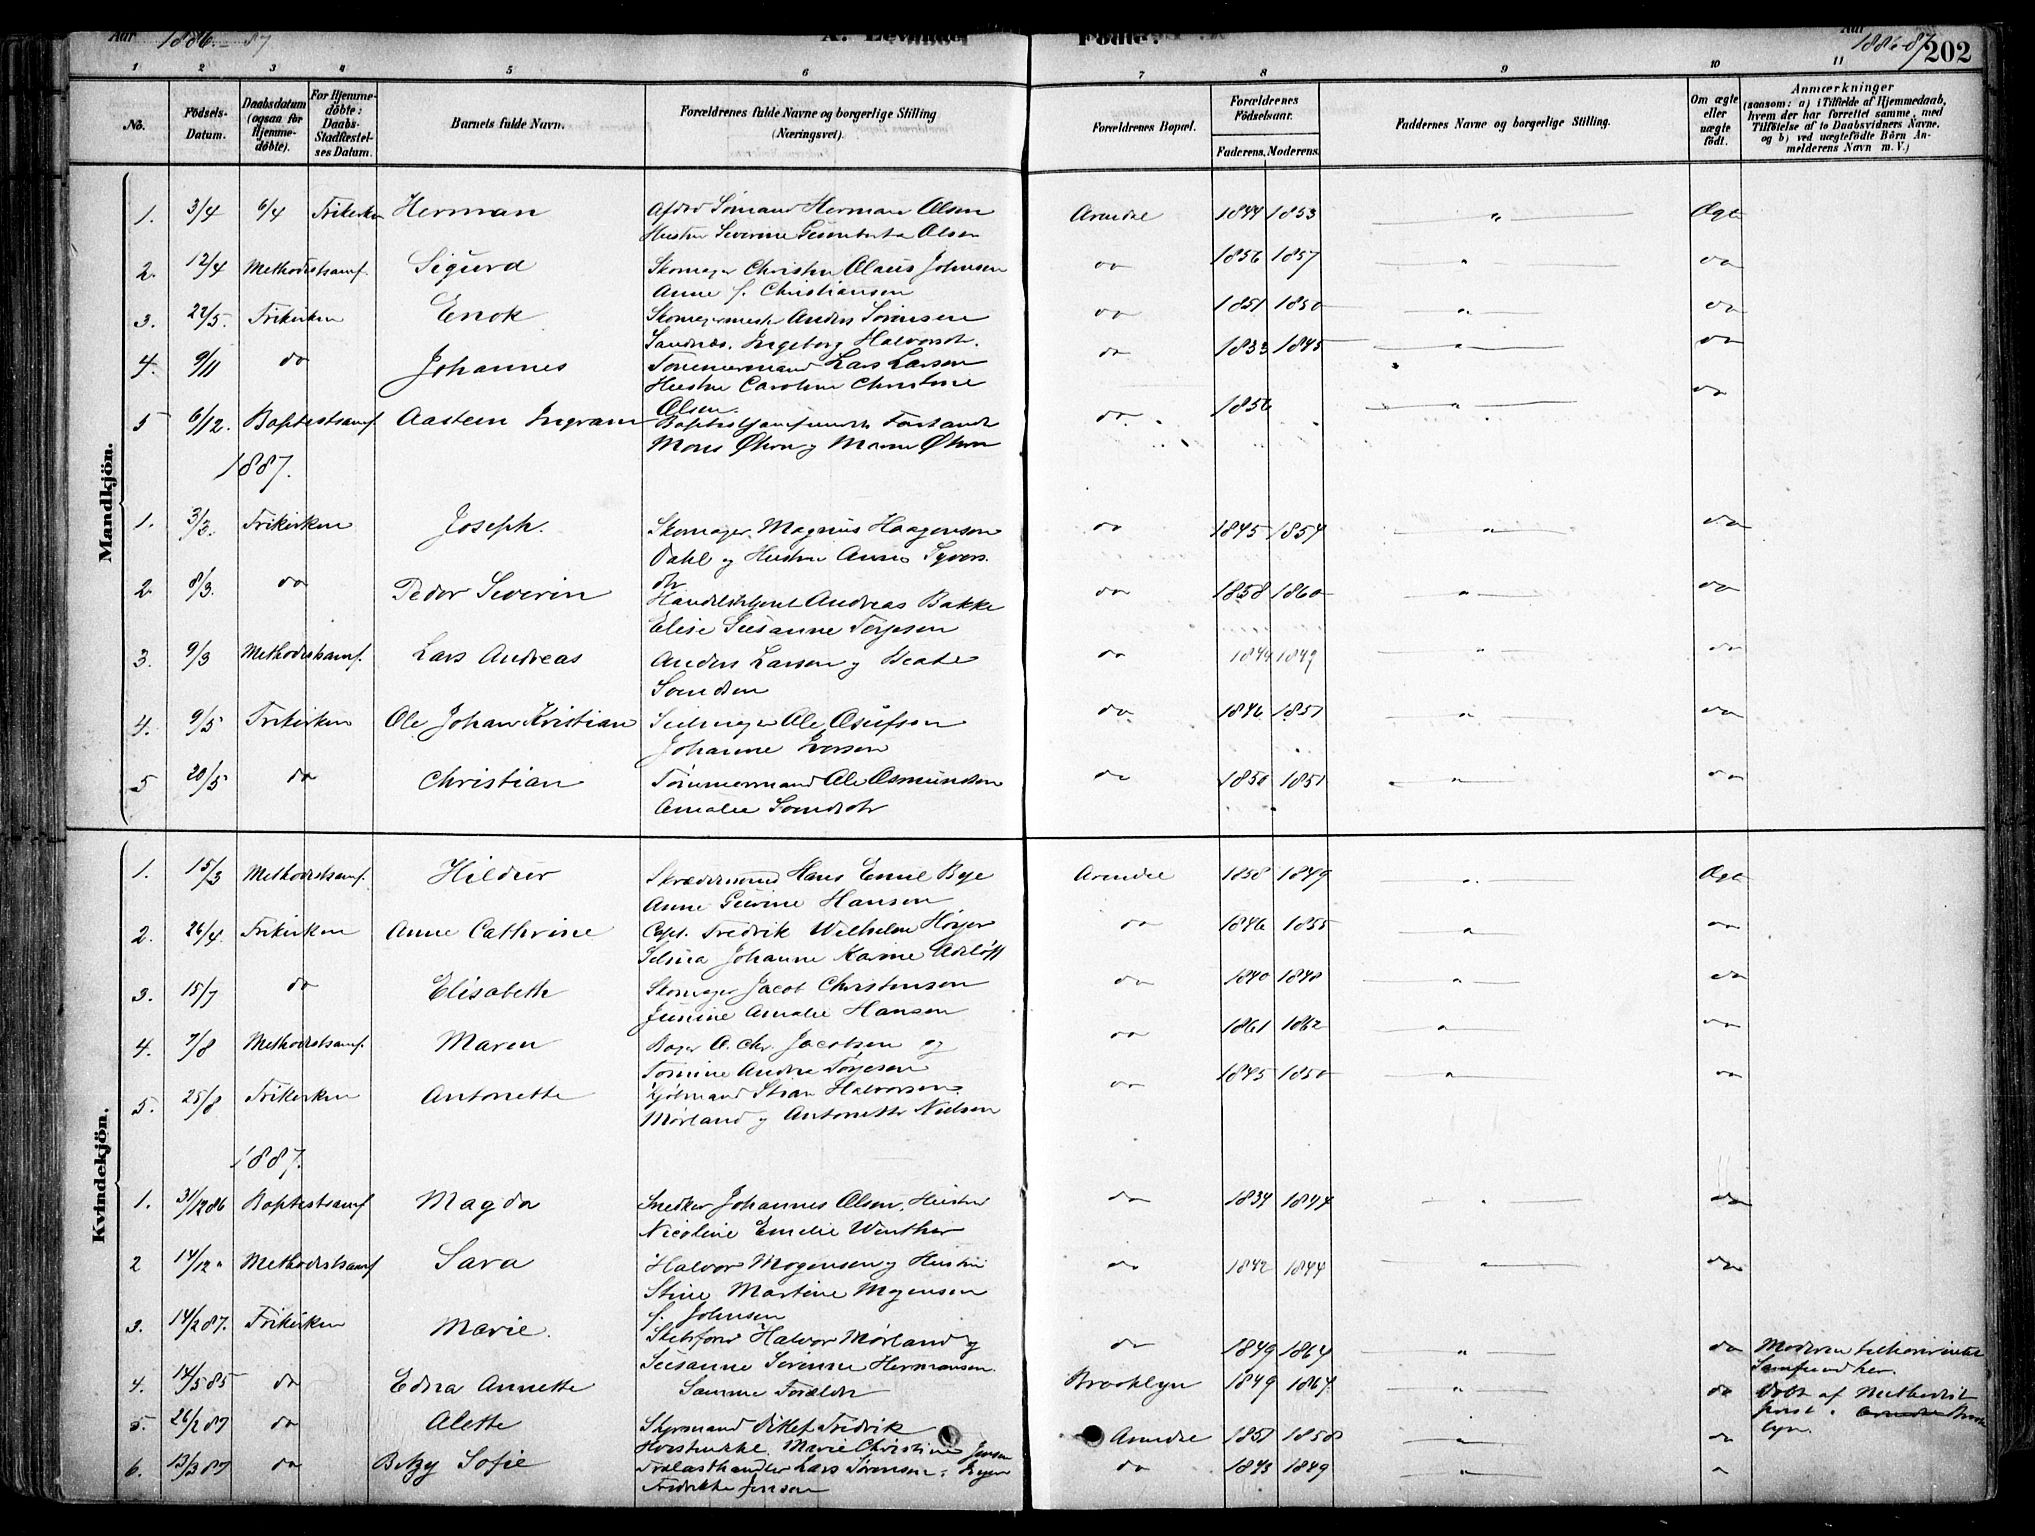 Aar 1886-87 A. Levende Fødte. Aar 1886-87 202
1 2 3 4 5 6 7 8 9 10 11
No. Fødsels-Datum. Daabsdatum (ogsaa for Hjemmedøbte). For Hjemmedøbte: Daabs-Stadfæstelses Datum. Barnets fulde Navn. Forældrenes fulde Navne og borgerlige Stilling (Næringsvei). Forældrenes Bopæl. Forældrenes Fødselsaar. Faderens. Moderens. Faddernes Navne og borgerlige Stilling. Om ægte eller uægte født. Anmærkninger (saasom: a) i Tilfælde af Hjemmedaab, hvem der har forrettet samme, med Tilføielse af to Daabsvidners Navne, og b) ved uægtefødte Børn Anmelderens Navn m. V.)
Mandkjön.
1. 3/4 6/4 Frikirken Herman Afdød Sømand Herman Olsen Arendal 1844 1853 " Ægte
Hustru Severine Olsen
2. 12/4 Methodistsamf. Sigurd Skomager Christen Olaus Johnsen do 1856 1857 " do
Anne f. Christiansen
3. 22/5. Frikirken Enok Skomagermester Anders Sørensen do 1851 1850 " do
Sandnæs, Ingeborg Halvorsdr.
4. 9/11 do Johannes Tømmermand Lars Larsen do 1833 1845 " do
Hustru Caroline Christine
Olsen.
5 6/12. Baptistsamf. Aastein Ingvam Baptistsamfundets Forstander do 1856 " do
Mons Økern og Maren Økern
1887.
1. 3/3. Frikirken Joseph. Skomager Magnus Haagensen do 1845 1854 " do
Dahl og Hustru Anne Syvers
dtr
2. 8/3. do Peder Severin Handelsbetjent Andreas Bakke do 1858 1860 " do
Elise Susanne Terjesen
3. 9/3 Methodistsamf. Lars Andreas Anders Larsen og Beate do 1844 1849 " do
4. 9/5 Frikirken Ole Johan Kristian Seilmager Ole Osufsen do 1846 1851 " do
Johanne Iversen
5 20/5 do Christian Tømmermand Ole Osmundsen do 1850 1851 " do
Amalie
Kvindekjön.
1. 15/3 Methodistsamf. Hildur Skræddersvend Hans Emil Bye Arendal 1858 1849 " Ægte
Anne Gurine Hansen
2. 26/4. Frikirken Anne Cathrine Capt. Fredrik Wilhelm Høyer do 1846 1855 " do
Selma Johanne Karine Adeløff
3. 15/7 do Elisabeth Skomager Jacob Christensen do 1840 1848 " do
Junine Amalie Hansen
4. 7/8 Methodistsamf. Maren Bager O. Chr. Jacobsen og do 1861 1862 " do
Tomine Andrea Terjesen
5. 25/8 Frikirken Antonette Sjømand Stian Halvorsen do 1845 1850 " do
Mørland og Antonette Nielsen
1887.
1. 31/12 86 Baptistsamf Magda Snedker Johannes Olsen, Hustru do 1834 1844 " do
Nicoline Emelie Winther
2 14/12 " Methodistsamf Sara Halvor Mogensen og Hustru do 1842 1844 " do
Stine Martine Mogensen
f. Johnsen
3. 14/2 87. Frikirken Marie. Skibsfører Halvor Mørland og do 1849 1864 " do Moderen tilhører intet
Susanne Severine Hermansen. Samfund her.
4. 14/5 85 do Edna Annette Samme Forældre Brooklyn 1849 1864 " do Døbt af Methodist
5. 26/2 87 do Alette Styrmand Ditlef Fredrik Arendal 1851 1858 " do præst i Arendal Brook
Marie Christine Jensen lyn.
6. 13/3 87 do Betzy Sofie Trælasthandler Lars Sørensen do 1843 1849 "
Fredrikke Jensen